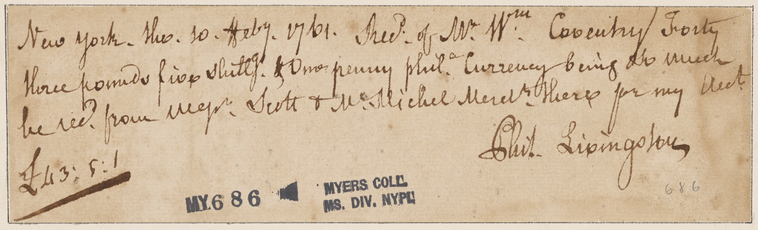 New York. tho. 10. Feby. 1761. Recd. of Mr. Wm. Coventry Forty
three pounds five shillgs. & One penny phila. Currency being so much
he recd. from Messrs. Scott & Mc.Michel Merchts. there for my Acct.
Phil. Livingston
£43:5:1
MY.686
MYERS COLL.
MS. DIV. NYPL
686